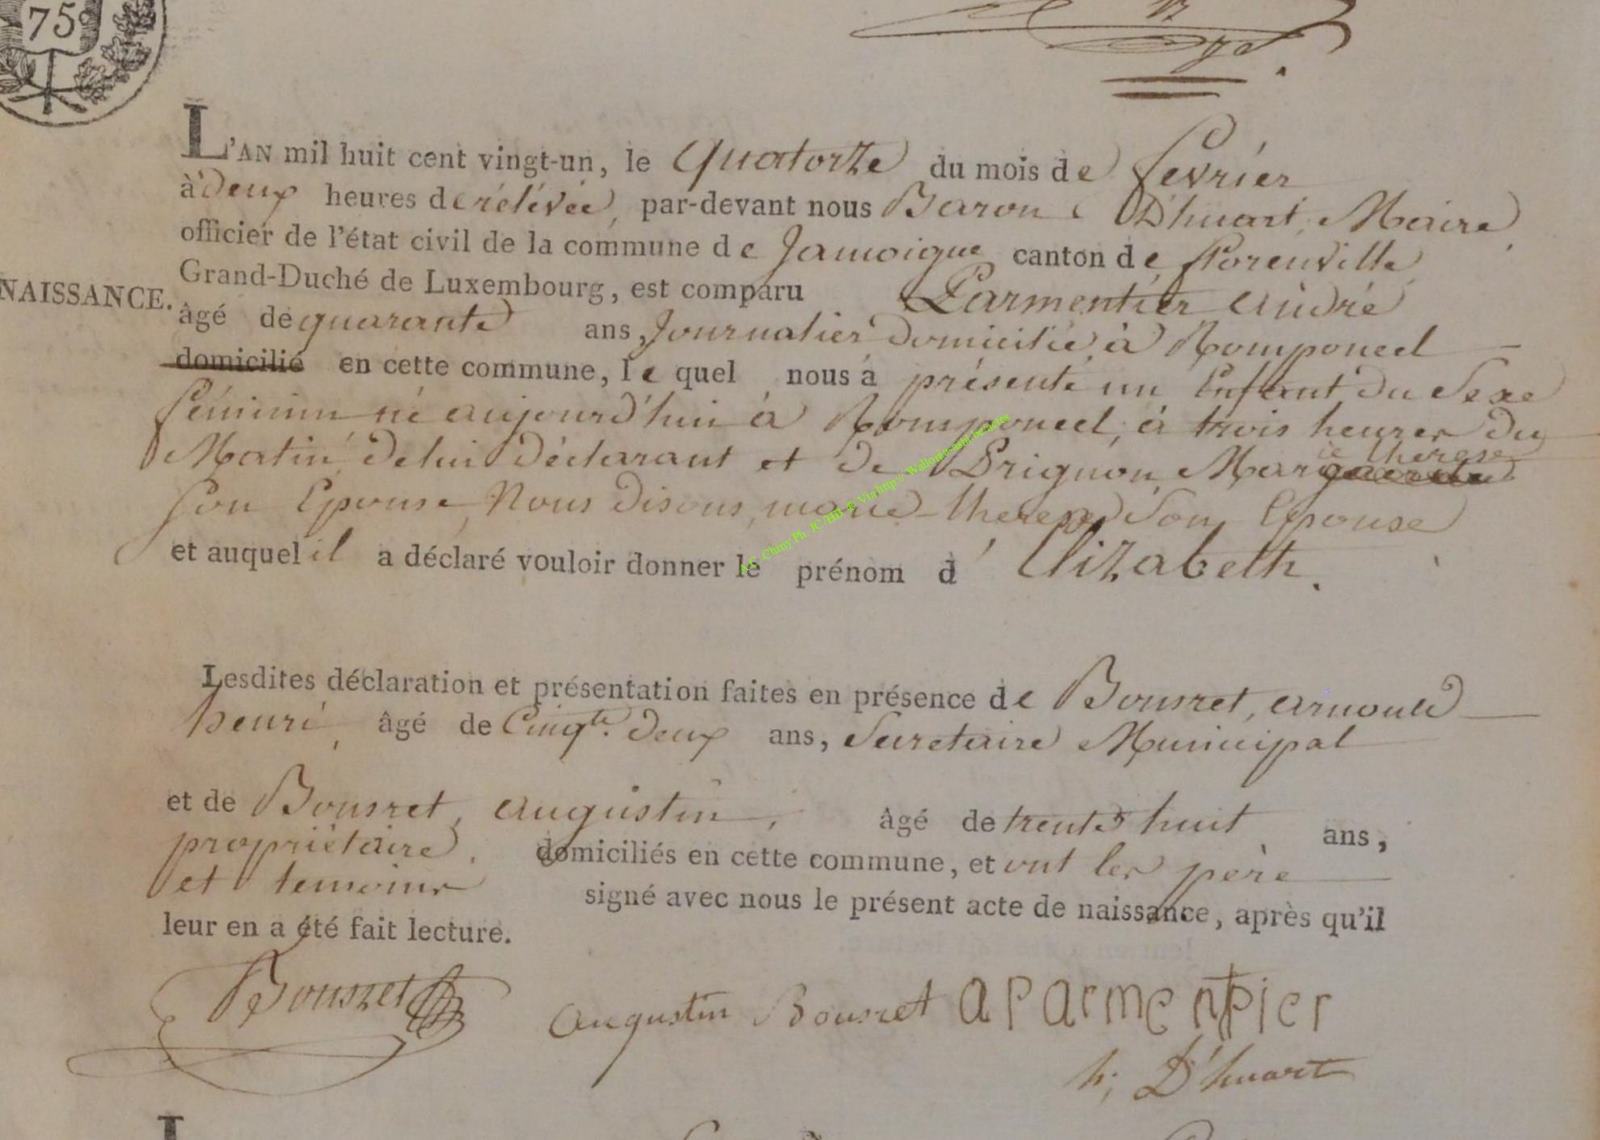 75
L'AN mil huit cent vingt-un, le quatorze du mois de fevrier
à deux heures de rélévée, par-devant nous Baron D'huart, Maire,
officier de l'état civil de la commune de Jamoigne canton de florenville
Grand-Duché de Luxembourg, est comparu Parmentier andré
NAISSANCE.
âgé de quarante ans, Journalier domicilié à Romponcel
domicilié en cette commune, lequel nous a présenté un Enfant du Sexe
féminin né aujourd'hui à Romponcel, à trois heures du
Matin, de lui déclarant et de Prignon Marguerite
ie therese
son Epouse, Nous disons, marie-therese Son Epouse
et auquel il a déclaré vouloir donner le prénom d'Elizabeth.
Lesdites déclaration et présentation faites en présence de Bousret, arnould
henri, âgé de Cinqte. deux ans, Secretaire Municipal
et de Bousret, augustin, âgé de trente huit ans,
propriétaire, domiciliés en cette commune, et ont les père
et temoins signé avec nous le présent acte de naissance, après qu'il
leur en a été fait lecture.
Bousret
augustin Bousret aParmentier
h; D'huart
L